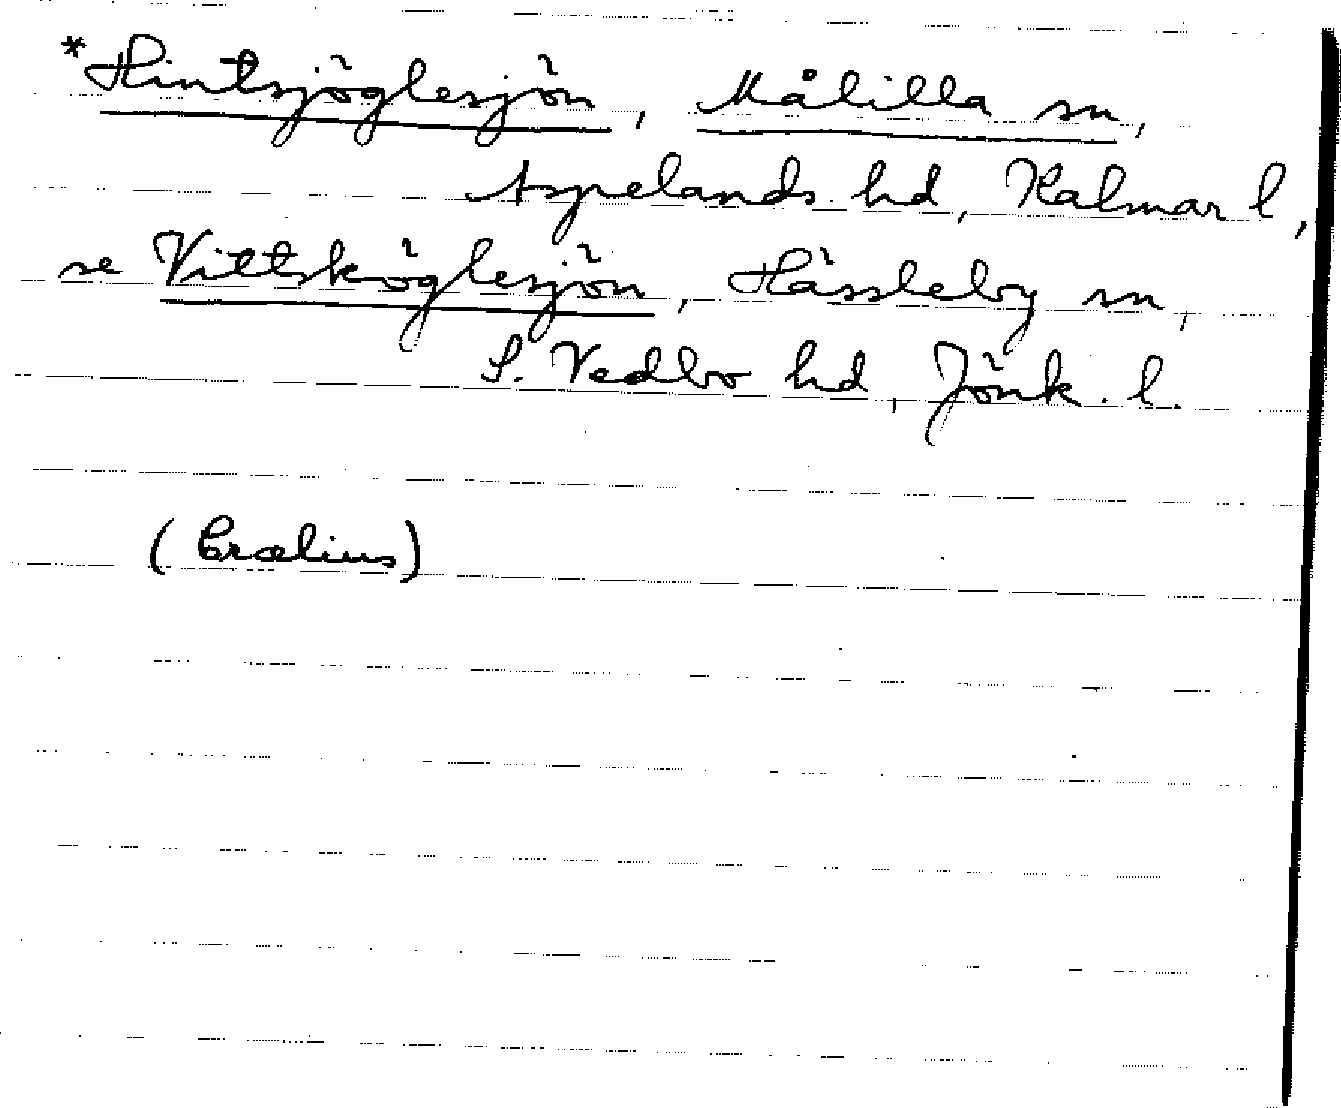 *Hintsjöglesjön, Målilla sn,
Aspelands hd, Kalmar l,
se Vittsköglesjön, Hässleby sn,
S. Vedbo hd, Jönk. l.
(Crælius)